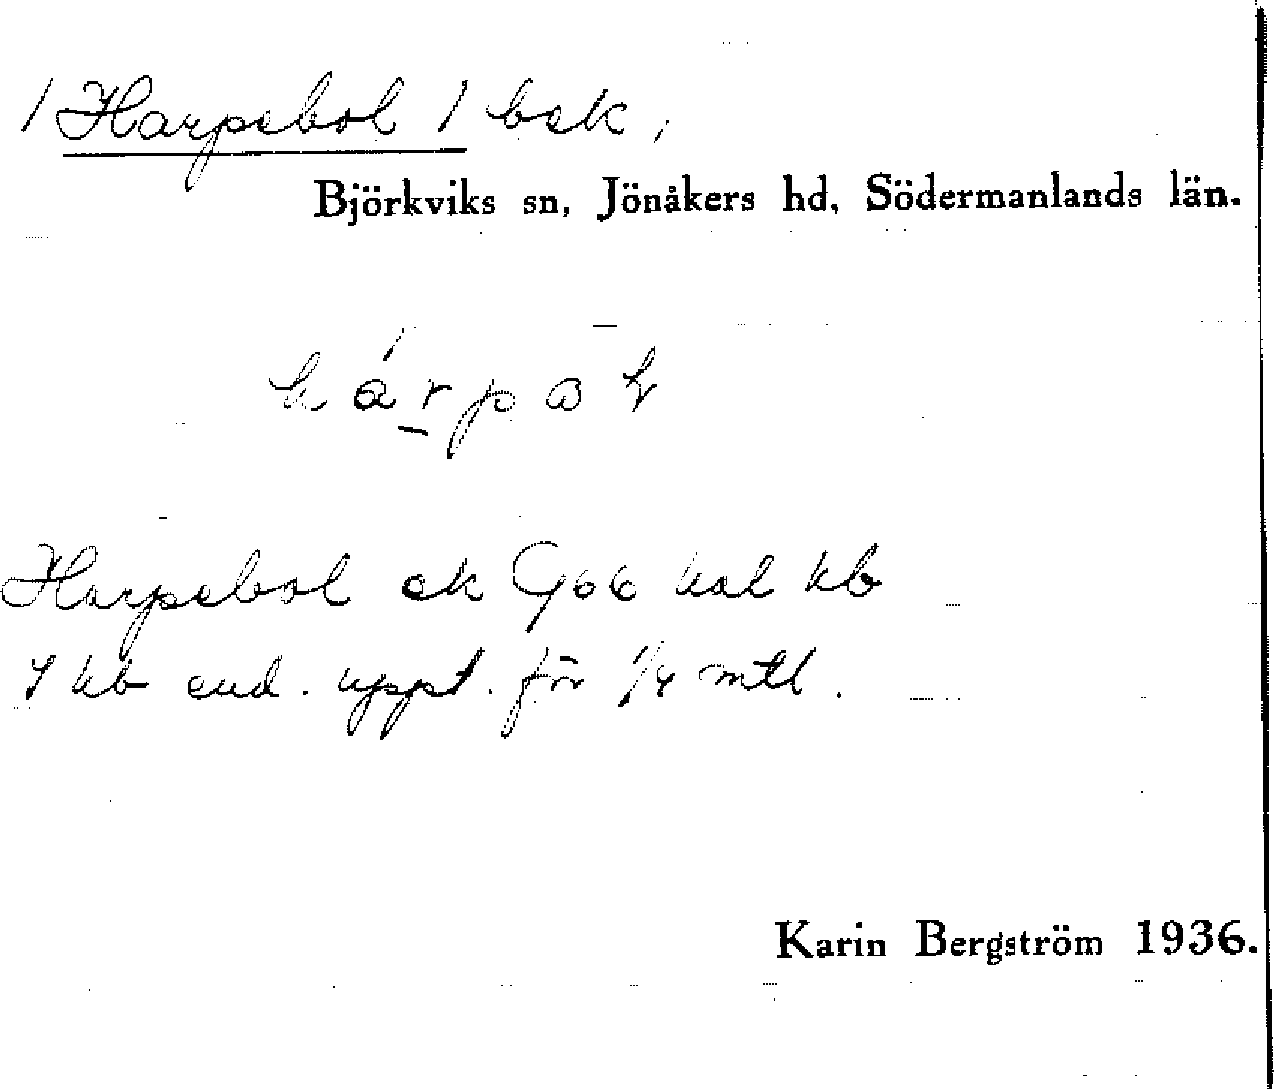 / Harpebol / bsk,
Björkviks sn, Jönåkers hd, Södermanlands län.
Harpebol ek G 66 kal kb
I kb end. uppt. för 1/4 mtl.
Karin Bergström 1936.